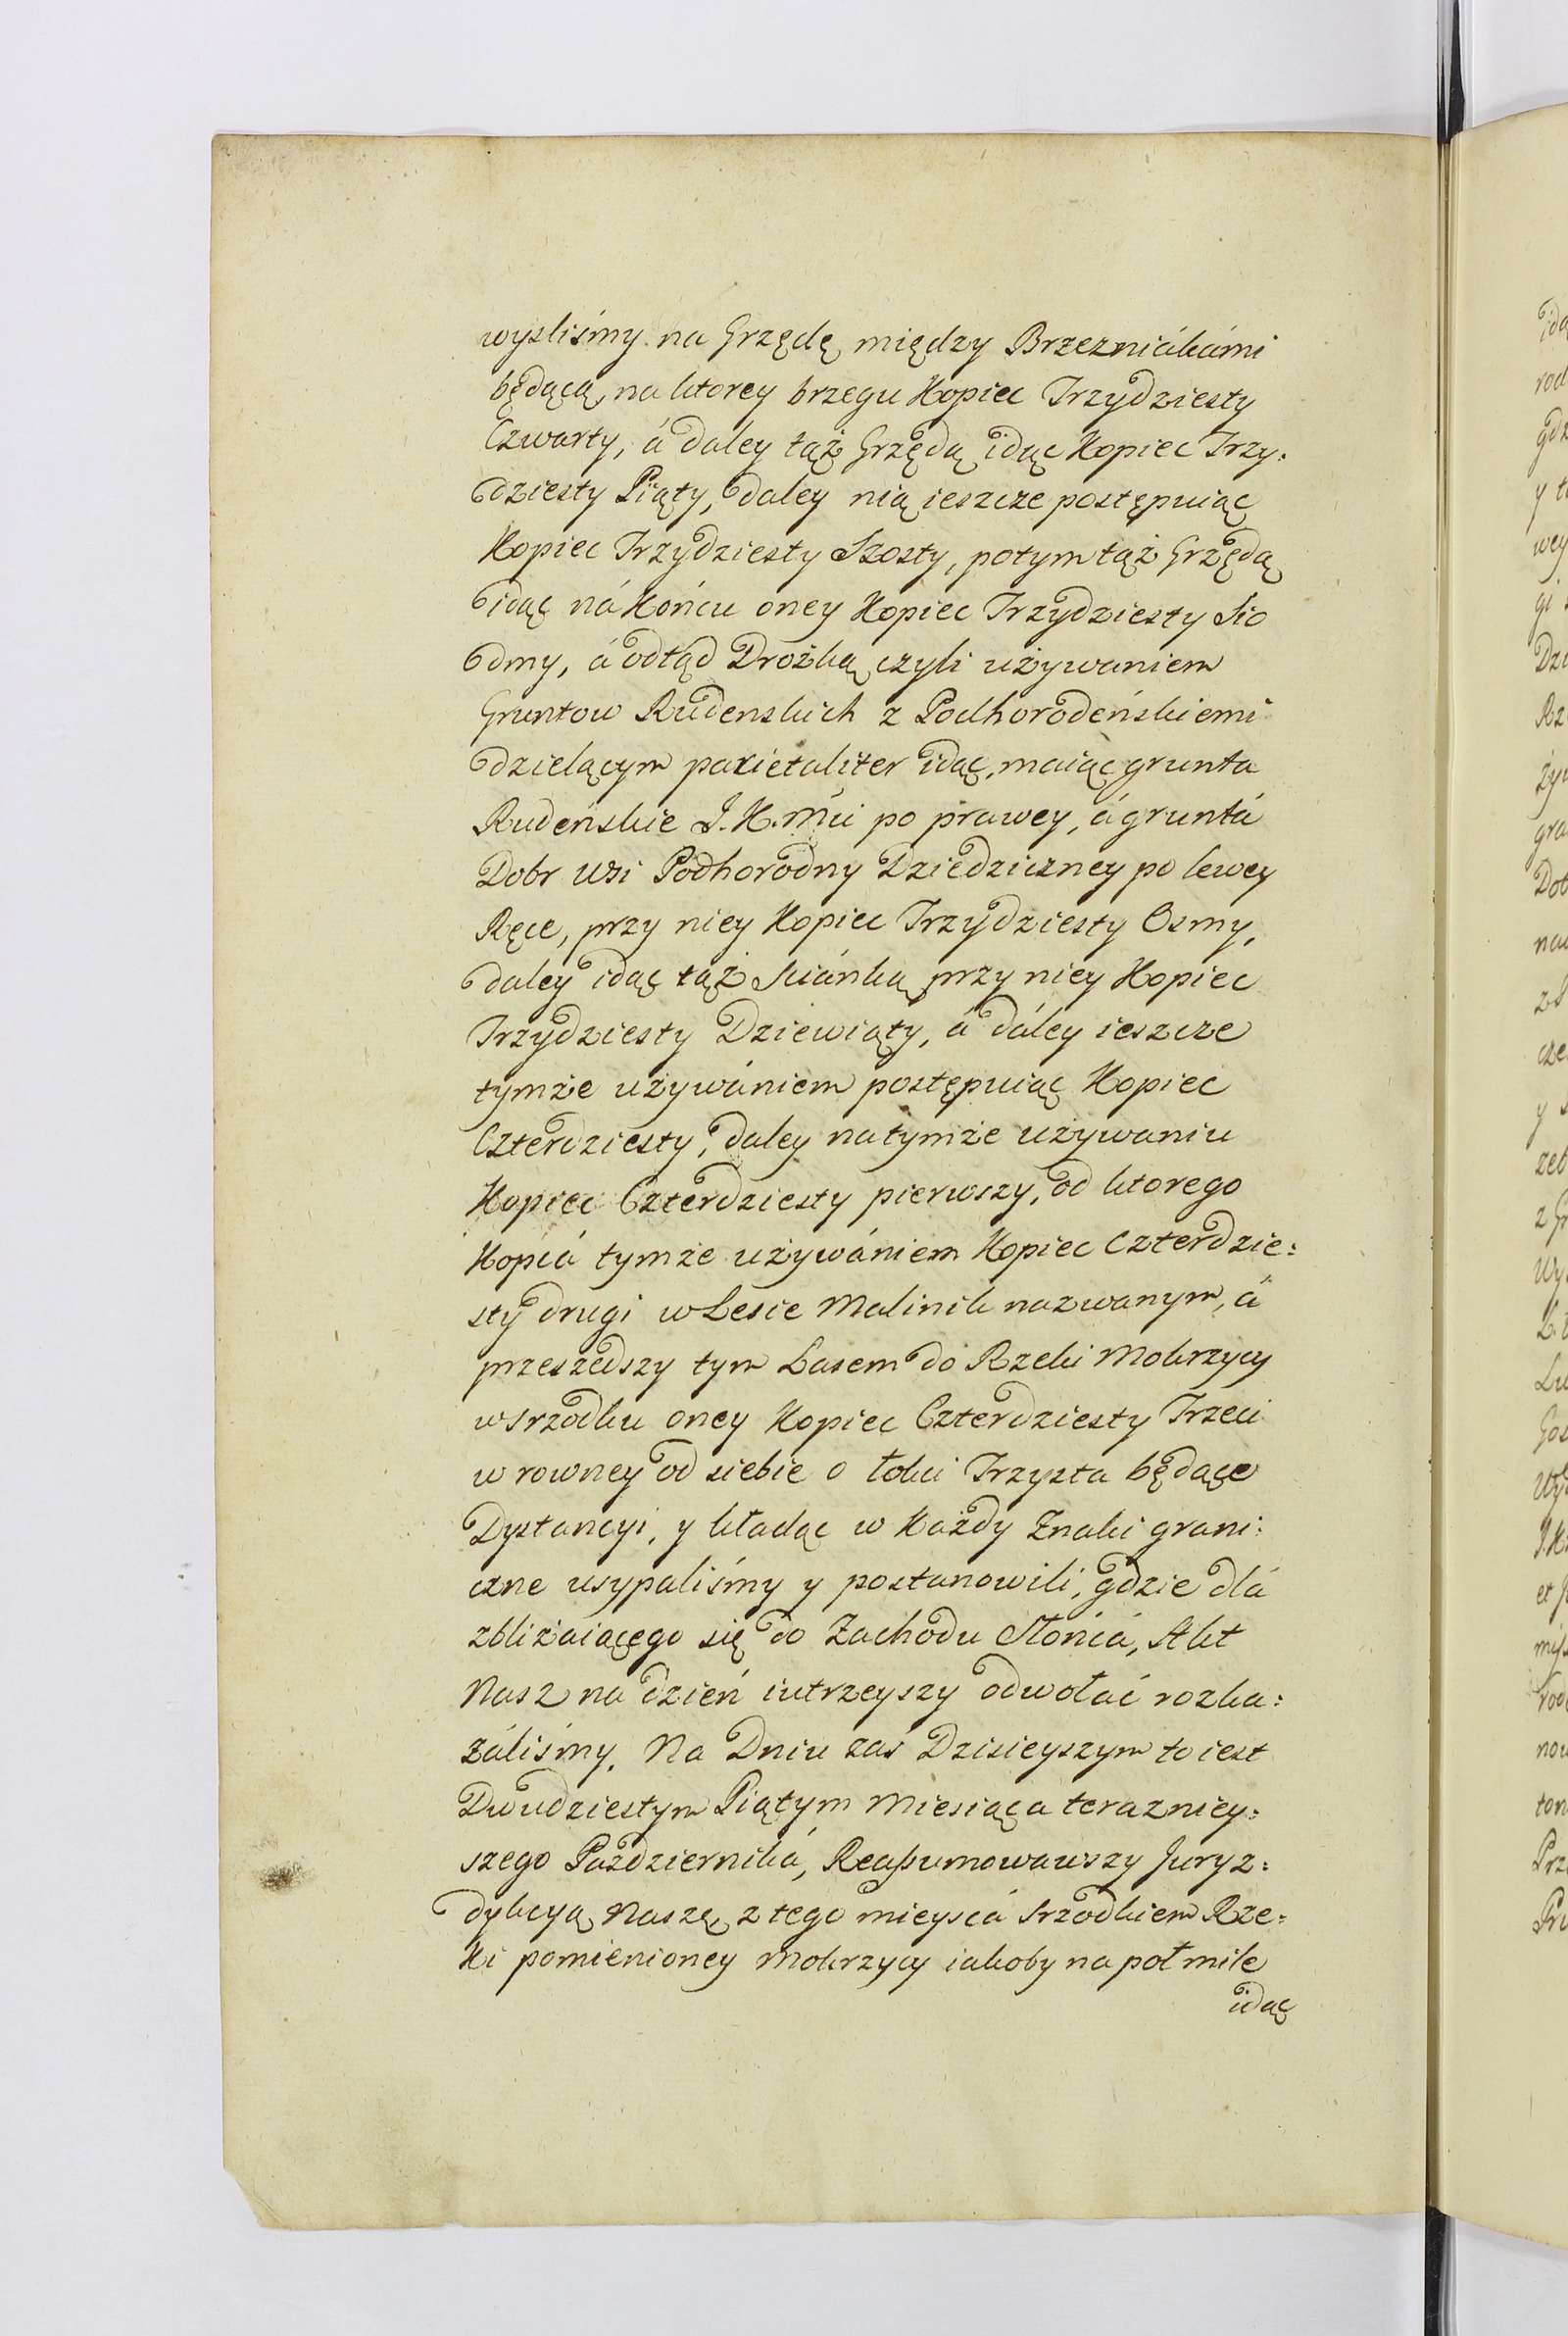 wysliśmy na Grzędę między Brzezniákámi
będącą, na ktorey brzegu Kopiec Trzydziesty
Czwarty, á daley tąż Grzędą idąc Kopiec Trzy:
dziesty Piąty, daley nią ieszcze postępuiąc
Kopiec Trzydziesty Szosty, potym tąż Grzędą
idąc ná Końcu oney Kopiec Trzydziesty Sio
dmy, á odtąd Drożką czyli używaniem
Gruntow Rudenskich z Podhorodeńskiemi
dzielącym parietaliter idąc, maiąc grunta
Rudeńskie J. K. Mći po prawey, á gruntá
Dobr Wsi Podhorodny Dziedziczney po lewey
Ręce, przy niey Kopiec Trzydziesty Osmy,
daley idąc tąż Sciánką przy niey Kopiec
Trzydziesty Dziewiąty, á dáley ieszcze
tymże używániem postępuiąc Kopiec
Czterdziesty, daley na tymże używaniu
Kopiec Czterdziesty pierwszy, od ktorego
Kopcá tymże używániem Kopiec Czterdzie:
sty drugi w Lesie Malinik nazwanym, á
przeszedszy tym Lasem do Rzeki Mokrzycy
w srzodku oney Kopiec Czterdziesty Trzeci
w rowney od siebie o łokci Trzysta będące
Dystancyi, y kładąc w Każdy Znaki grani:
czne usypaliśmy y postanowili, gdzie dlá
zbliżaiącego się do Zachodu Słońcá, Akt
Nasz na dzień iutrzeyszy odwołać rozka:
záliśmy. Na Dniu zaś Dzisieyszym to iest
Dwudziestym Piątym Miesiąca terazniey:
szego Październiká, Reassumowawszy Juryz:
dykcyą Naszę z tego mieyscá srzodkiem Rze:
ki pomienioney Mokrzycy iakoby na poł mile
idąc